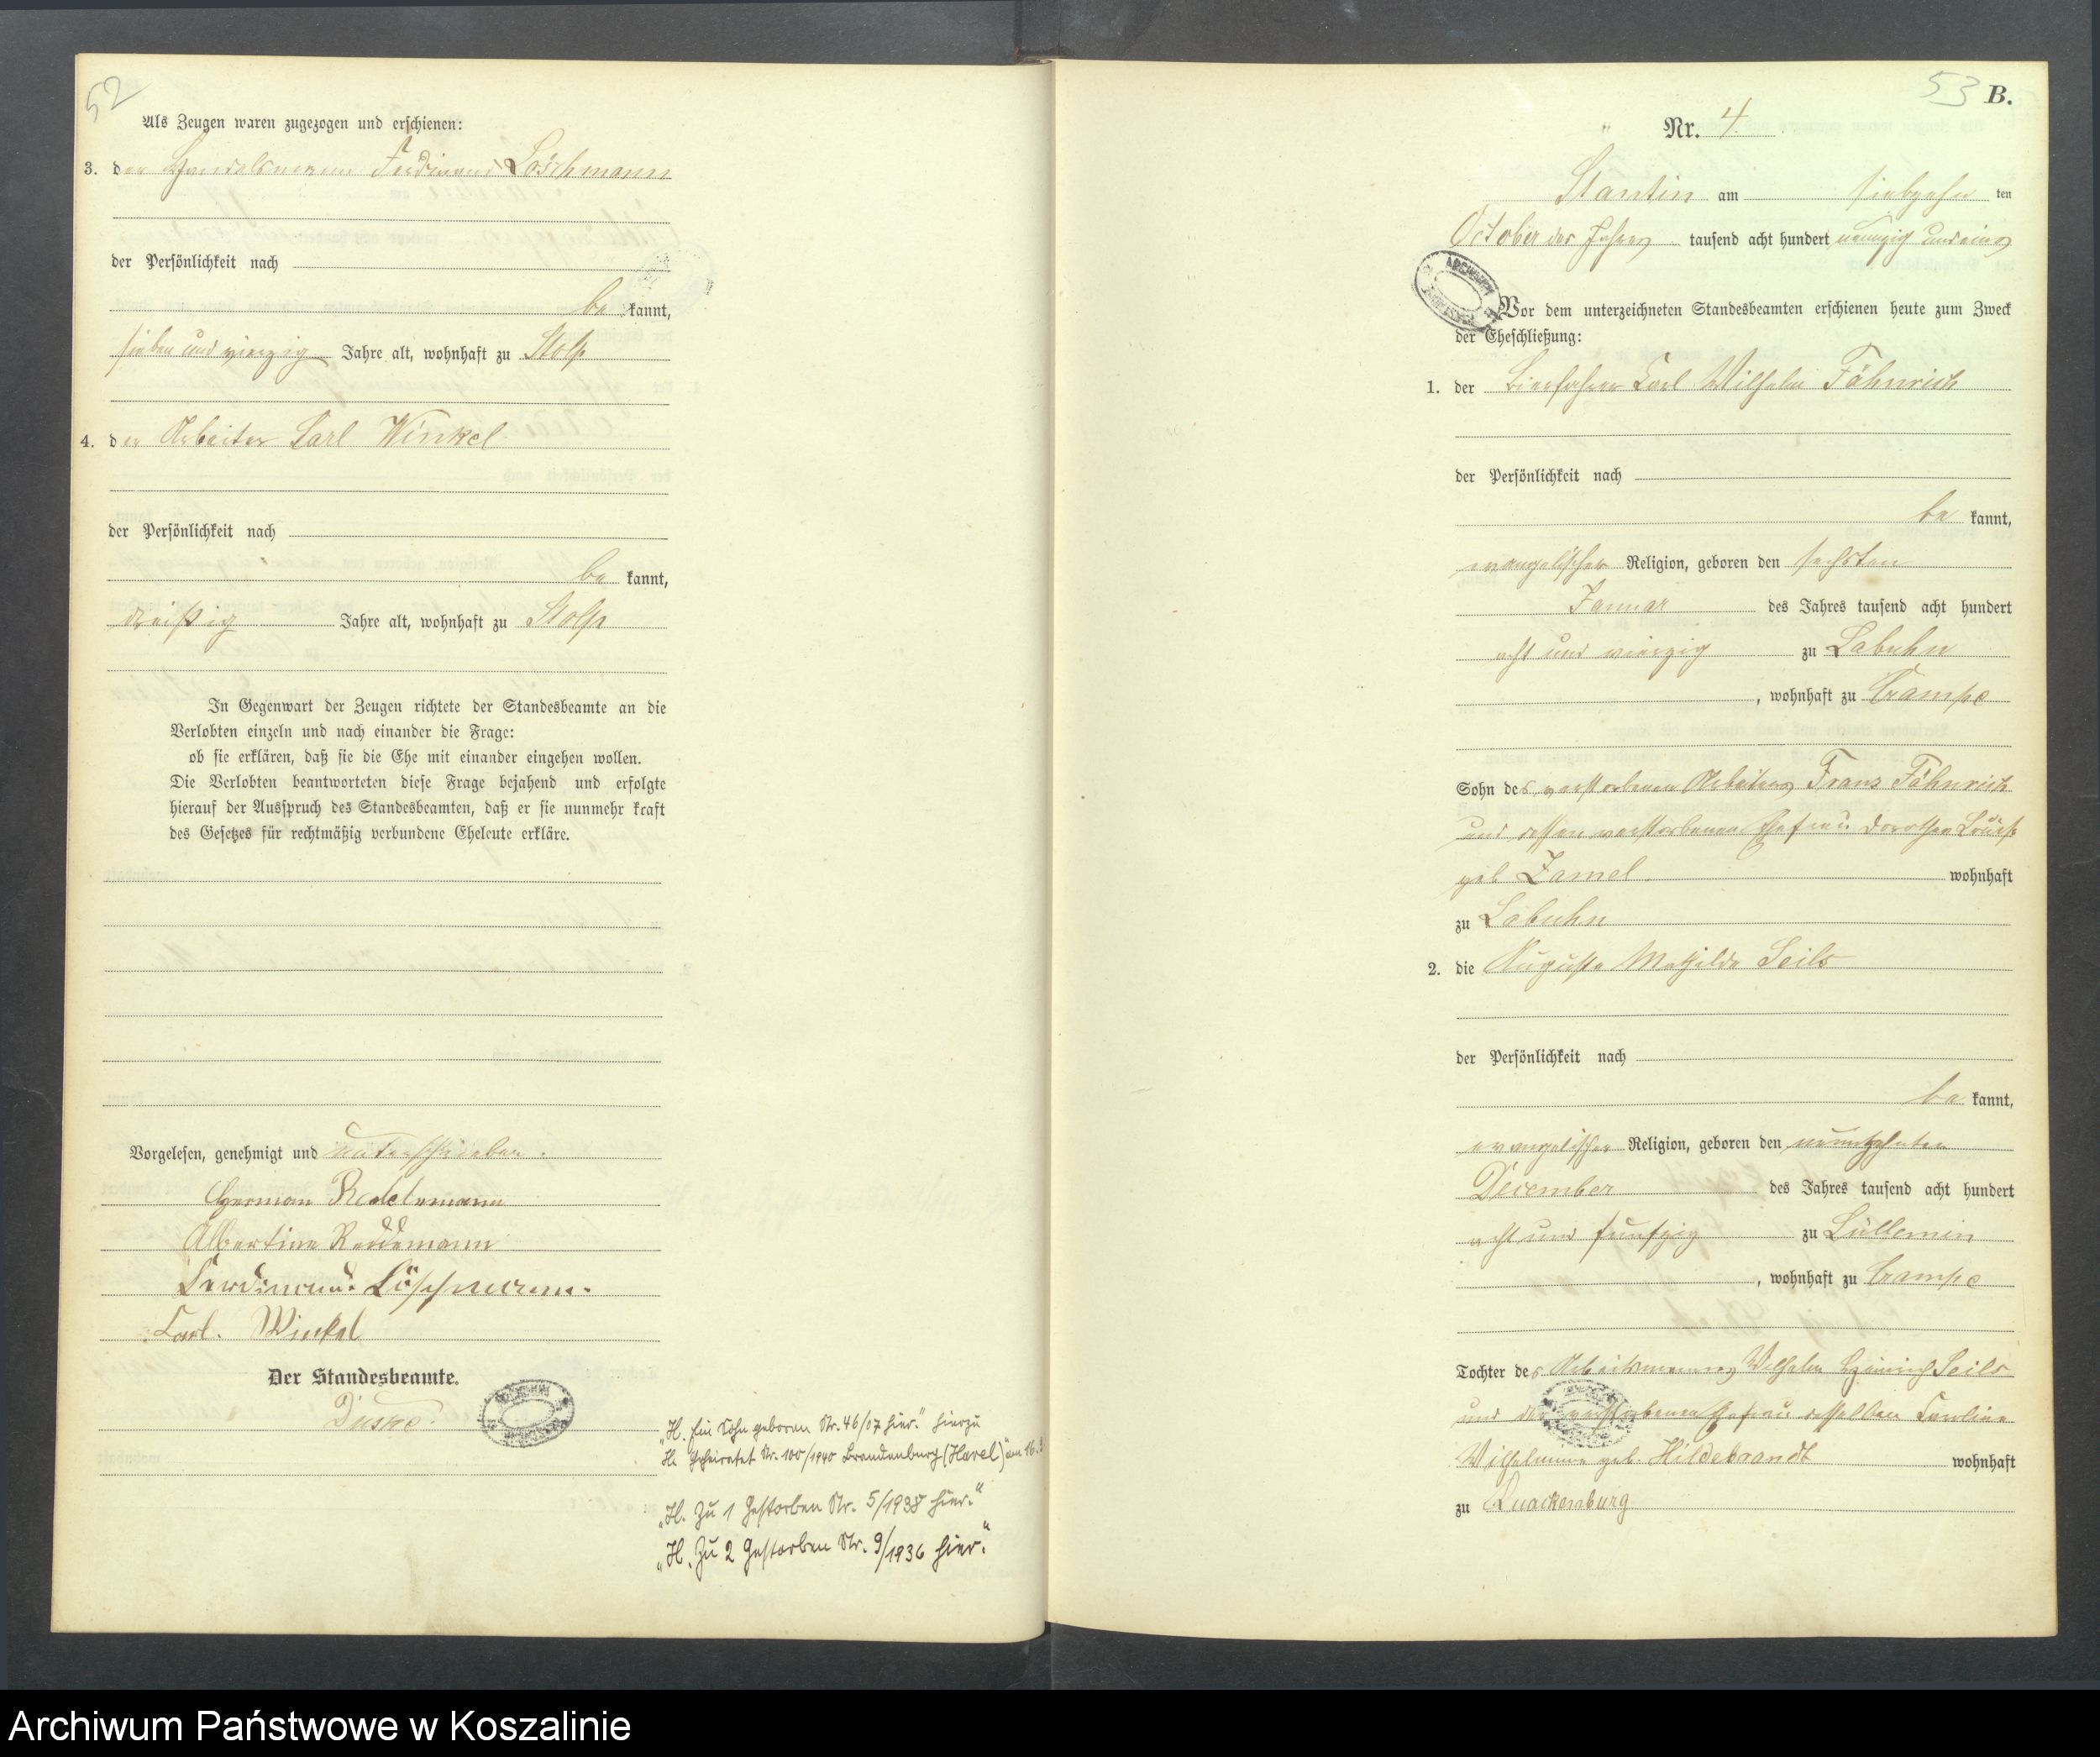 52
Als Zeugen waren zugezogen und erschienen:
3. der Handelsmann Ferdinand Löschmann
der Persönlichkeit nach
be kannt,
sieben und vierzig Jahre alt, wohnhaft zu Stolp
4. der Arbeiter Carl Winkel
der Persönlichkeit nach
be kannt,
dreißig Jahre alt, wohnhaft zu Stolp
In Gegenwart der Zeugen richtete der Standesbeamte an die
Verlobten einzeln und nach einander die Frage:
ob sie erklären, daß sie die Ehe mit einander eingehen wollen.
Die Verlobten beantworteten diese Frage bejahend und erfolgte
hierauf der Ausspruch des Standesbeamten, daß er sie nunmehr kraft
des Gesetzes für rechtmäßig verbundene Eheleute erkläre.
Vorgelesen, genehmigt und unterschrieben.
Herman Reddemann
Albertine Reddemann
Ferdinand Löschmann.
Carl. Winkel
Der Standesbeamte.
„H. Ein Sohn geboren Nr. 46/07 hier.“ hierzu
H. Geheiratet Nr. 100/1940 Brandenburg (Havel)“ am 16.
„H. Zu 1 Gestorben Nr. 5/1938 hier.“
„H. Zu 2 Gestorben Nr. 9/1936 hier.“
53 B.
Nr. 4.
Stantin am siebzehn ten
October des Jahres tausend acht hundert neunzig und eins
Vor dem unterzeichneten Standesbeamten erschienen heute zum Zweck
der Eheschließung:
1. der Bierfahrer Carl Wilhelm Fähnrich
der Persönlichkeit nach
be kannt,
evangelischer Religion, geboren den sechsten
Januar des Jahres tausend acht hundert
acht und vierzig zu Labuhn
, wohnhaft zu Crampe
Sohn des verstorbenen Arbeiters Franz Fähnrich
und dessen verstorbenen Ehefrau Dorothea Louise
geb. Zamel wohnhaft
zu Labuhn
2. die Auguste Mathilde Seils
der Persönlichkeit nach
be kannt,
evangelischer Religion, geboren den neunzehnten
December des Jahres tausend acht hundert
acht und funfzig zu Lüllemin
, wohnhaft zu Crampe
Tochter des Arbeitsmannes Wilhelm Heinrich Seils
und der verstorbenen Ehefrau desselben Caroline
Wilhelmine geb. Hildebrandt wohnhaft
zu Quackenburg
Archiwum Państwowe w Koszalinie